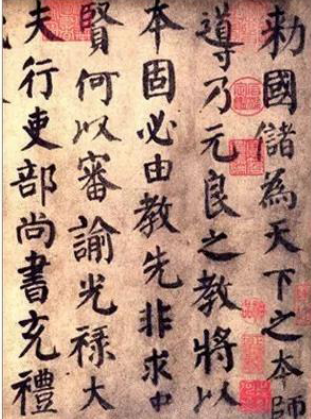 勑國儲為天下之本師
導乃元良之教將以
本固必由教先非求忠
賢何以審諭光祿大
夫行吏部尚書充禮